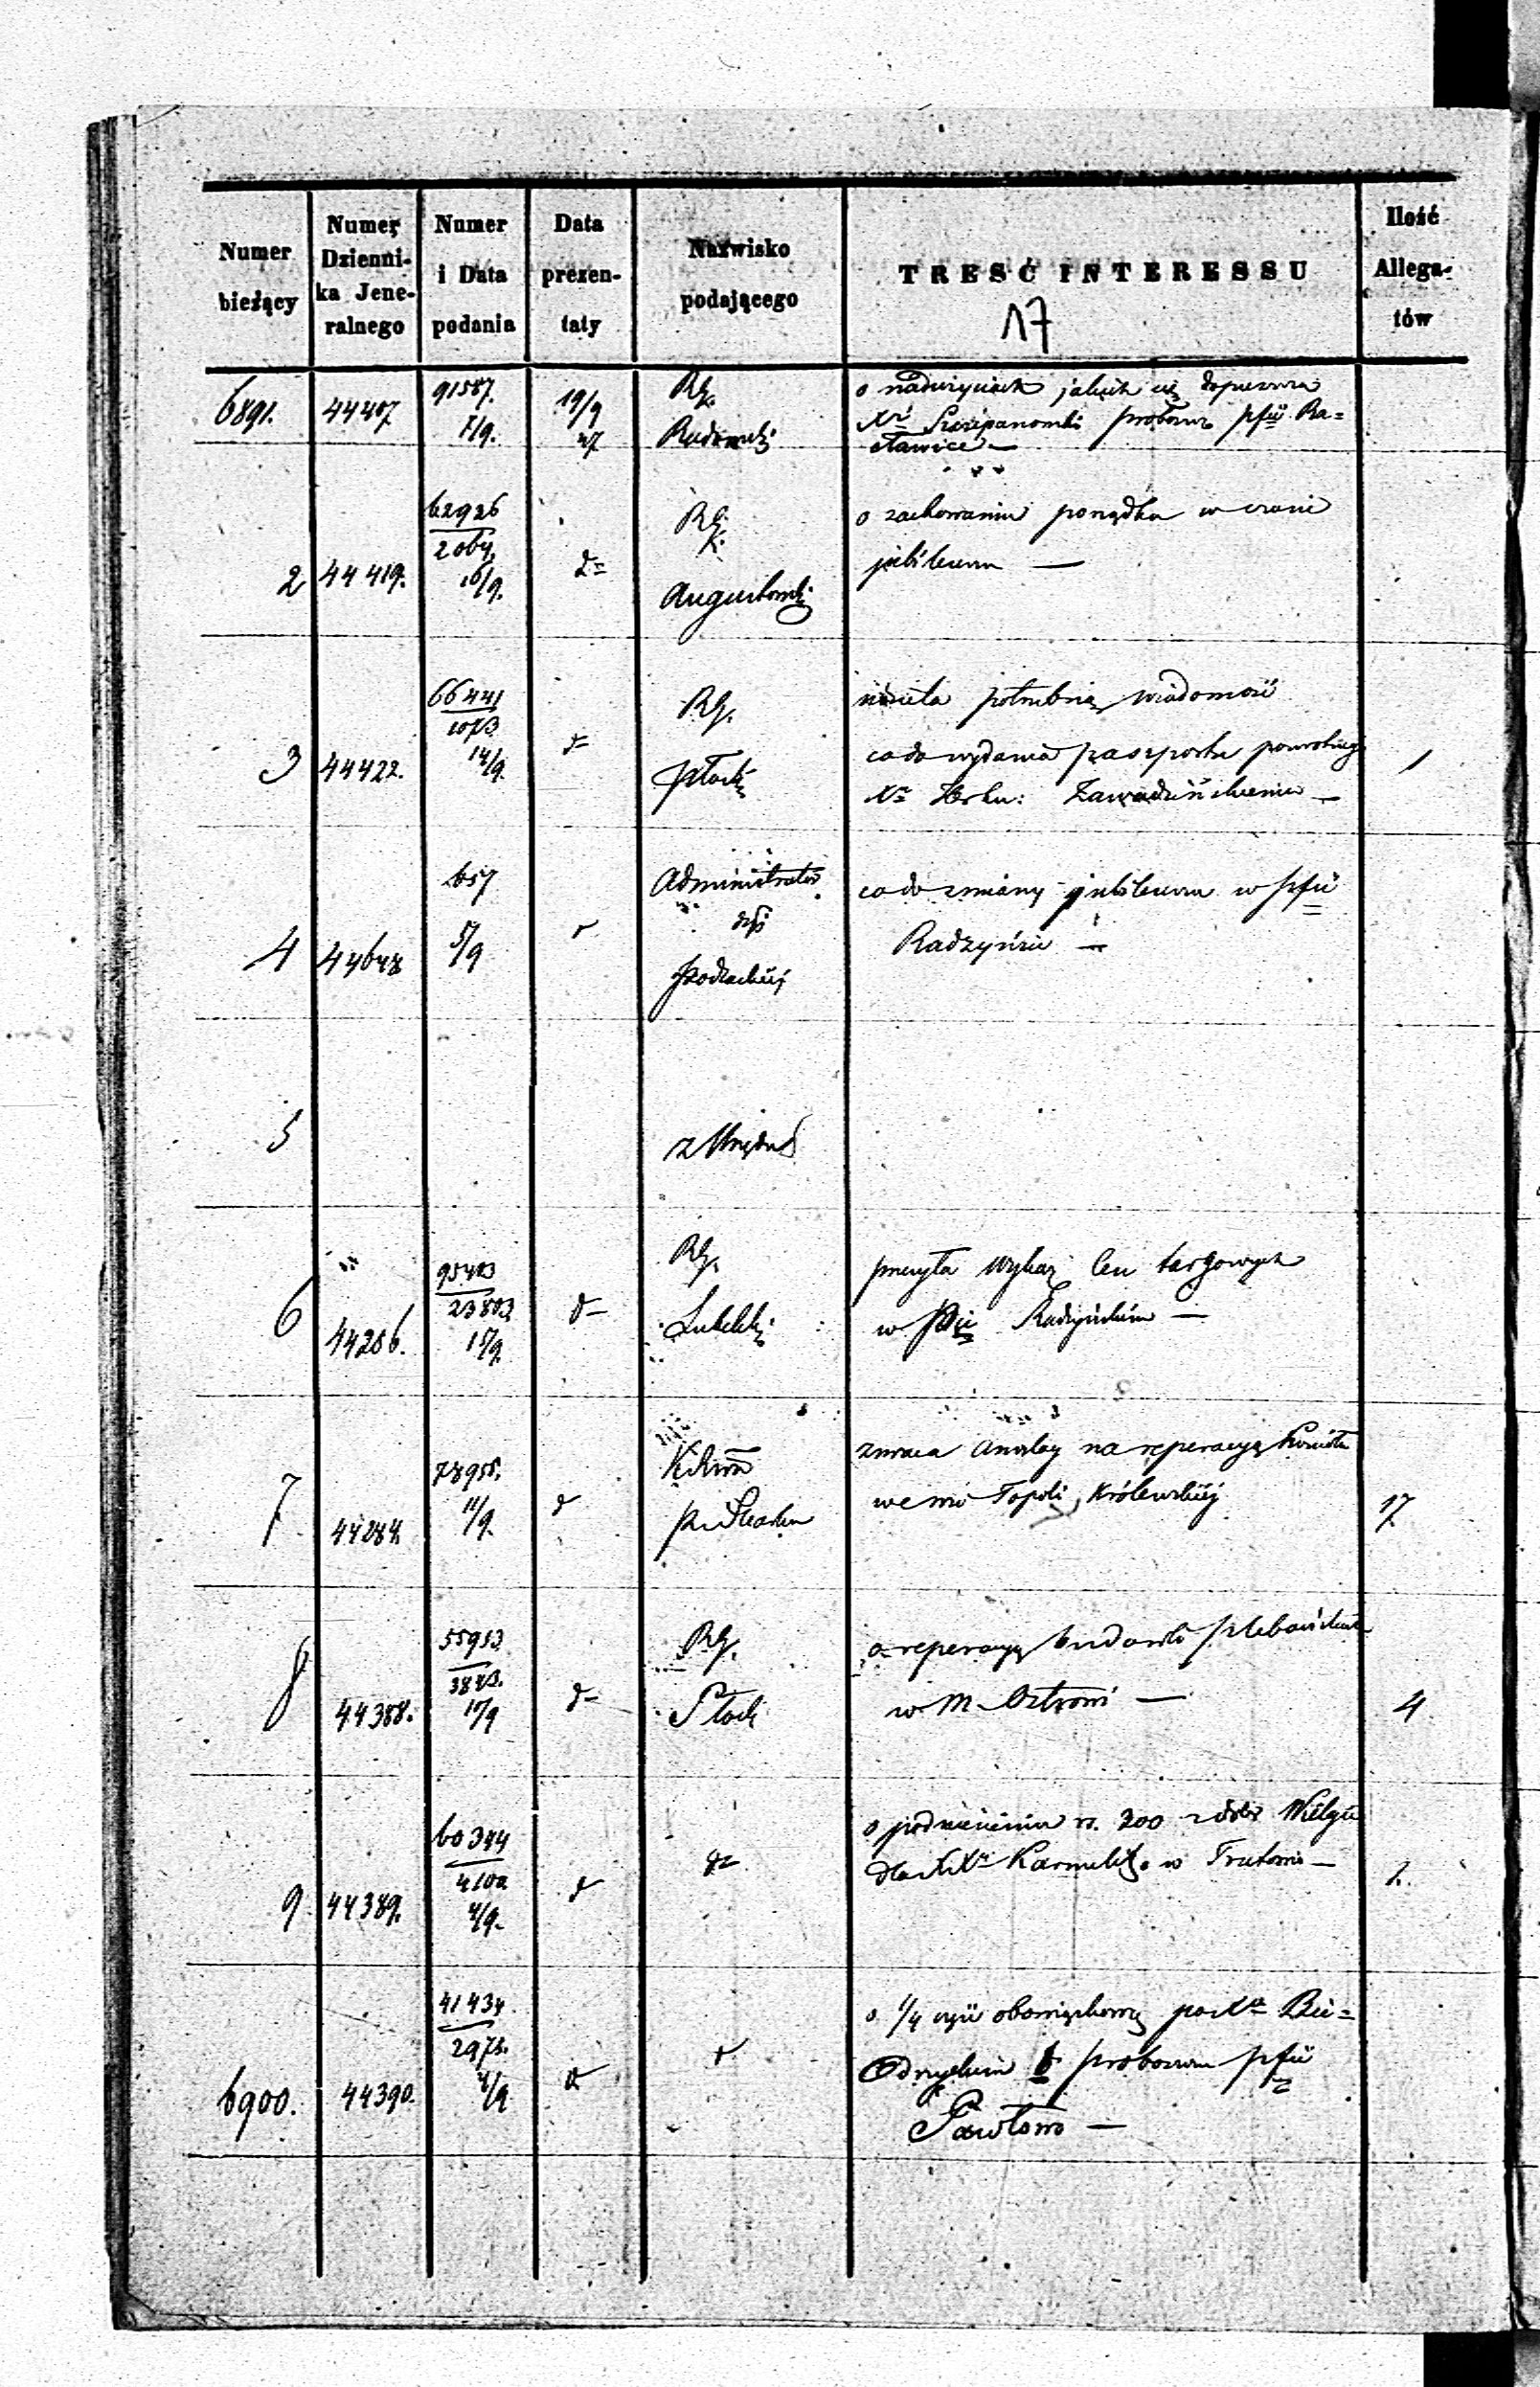 Numer bieżący
Numer Dziennika Jeneralnego
Numer i Data podania
Data prezentaty
Nazwisko podającego
TREŚĆ INTERESSU
Ilość Allegatów
17
6891. 44407. 91587. 7/9. 19/9 47 Rg. Radomski
o nadużyciach jakich się dopuszcza
Xdz Szczepanowski proboszcz pfii Ra=
cławice —
2 44419. 62926 2064. 16/9. d= Rg. Augustowski
o zachowaniu porządku w czasie
jubileuszu —
3 44422. 66441 1073 14/9. d= Rg. Płocki
udziela potrzebną wiadomość
co do wydania paszportu
Zawadzińskiemu — 1
4 657 5/9 Administrator
Podlaskiej
co do zmiany jubileuszu w pfii
Radzyńsie —
5 z Urzędu
6 44206. 95403 23803 15/9. d= Rg. Lubelski
przesyła wykaz cen targowych
w Pcie Radzyńskim —
7 44284. 78955. 11/9. d
zwraca anszlag na reperacyę kościoła
we wsi Topoli Królewskiej 17
8 44388. 55953 3883. 17/9 d= Rg. Płocki
o reperacyę budowli plebańskich
w M. Ostrowi — 4
9 44389. 60344 4/9. d d=
o podniesieniu rs. 300 z dóbr Wielgie
dla XX Karmelitów w Trutowie — 1.
6900. 44390. 41434. 2973. 4/9 d d
o 1/4 części obowiązkową po Xdzu Bie=
proboszczu pfii
Pawłowo —